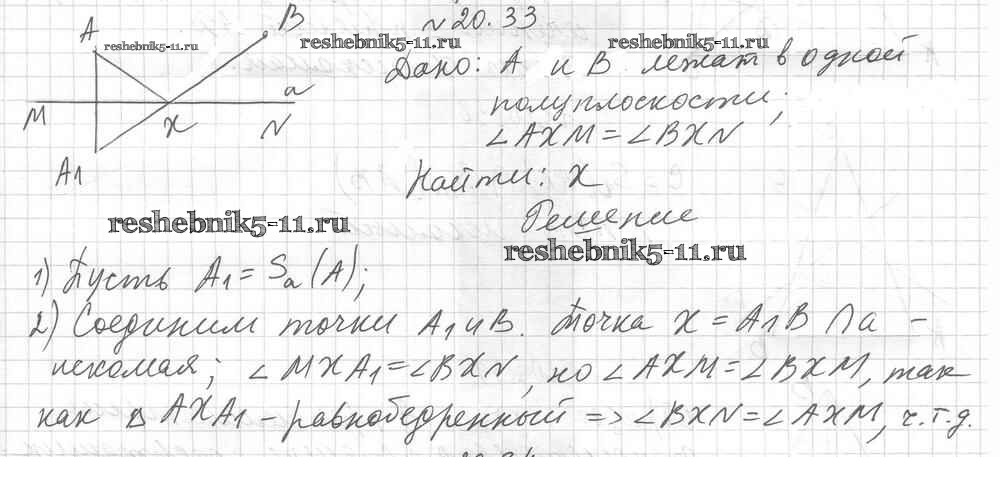 № 20.33
A
B
a
M
X
N
A1
reshebnik5-11.ru
reshebnik5-11.ru
reshebnik5-11.ru
Дано: A и B лежат в одной
полуплоскости;
∠AXM = ∠BXN
Найти: X
Решение
reshebnik5-11.ru
reshebnik5-11.ru
1) Пусть A1 = Sa(A);
2) Соединим точки A1 и B. Точка X = A1B ∩ a –
искомая; ∠MXA1 = ∠BXN, но ∠AXM = ∠BXM, так
как △ AXA1 – равнобедренный => ∠BXN = ∠AXM, ч.т.д.